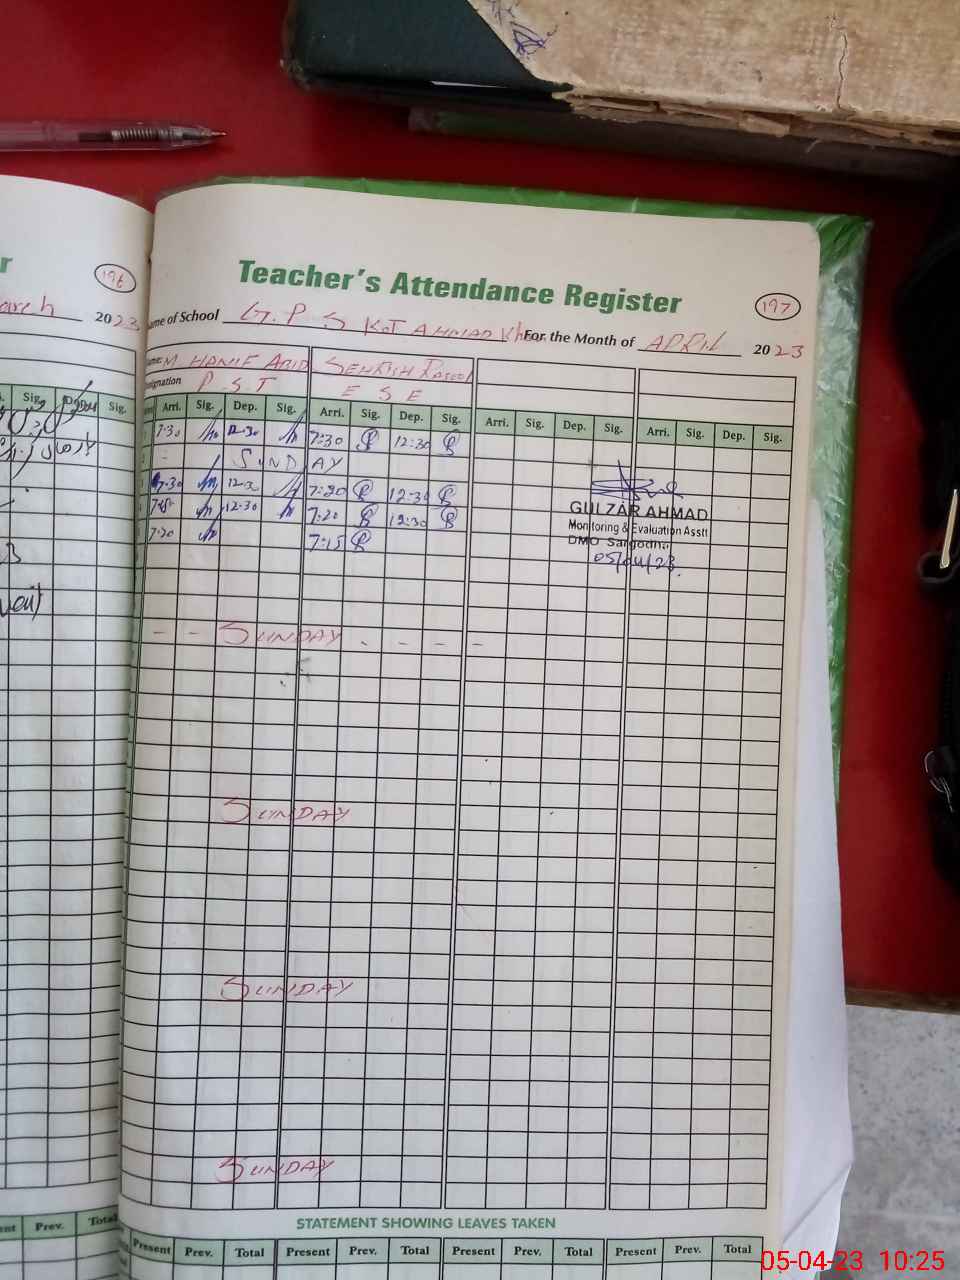 r
196
arch 2023
Sig. Sig.
Teacher's Attendance Register
197
ame of School G.P.S KOT AHMAD Khan For the Month of APRIL 2023
ame: M HANIF ABID
esignation P.S.T E S E
Arri. Sig. Dep. Sig. Arri. Sig. Dep. Sig. Arri. Sig. Dep. Sig. Arri. Sig. Dep. Sig.
7:30 12:30 7:30 12:30
SUNDAY
7:30 12:30 7:20 12:30
12:30 7:20 12:30
7:20 7:15
GULZAR AHMAD
Monitoring & Evaluation Asstt
DMO Sargodha
05/04/23
- - SUNDAY - - - -
SUNDAY
SUNDAY
SUNDAY
STATEMENT SHOWING LEAVES TAKEN
ent Prev. Total
Present Prev. Total Present Prev. Total Present Prev. Total Present Prev. Total
05-04-23 10:25